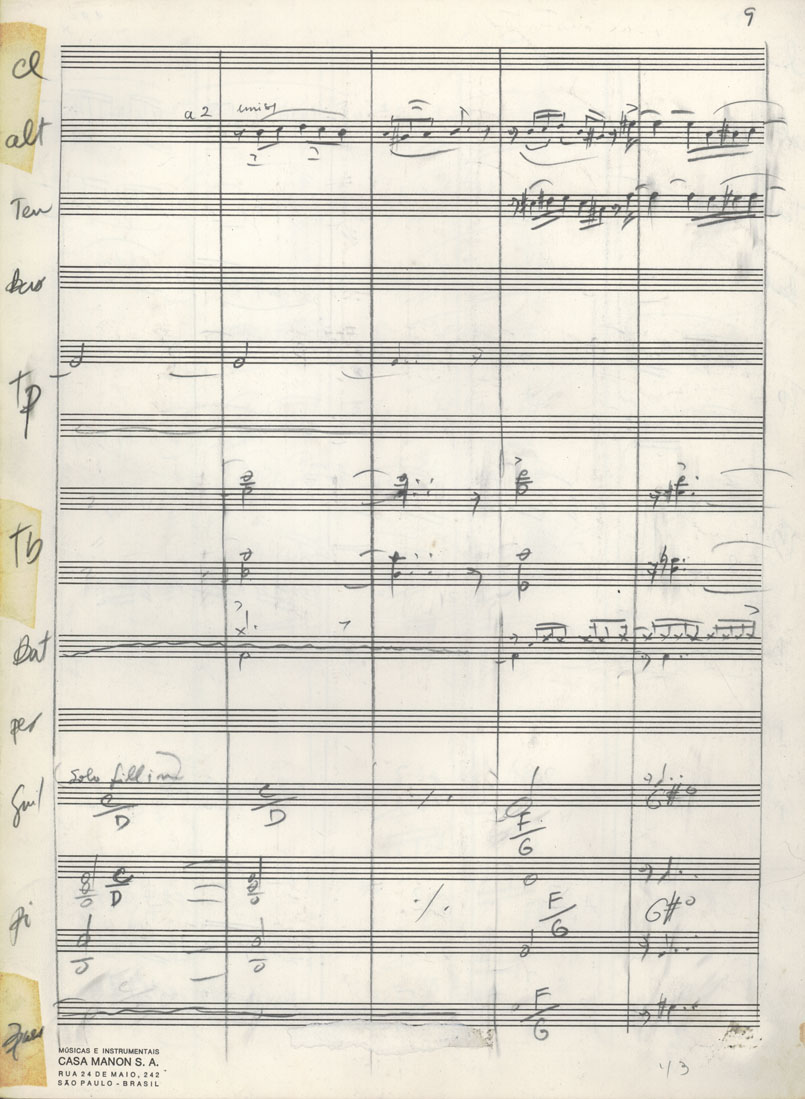 9
cl
alt a 2 unis
Ten
Bar
Tp
Tb
Bat
per
Guit
(Solo fill in)
C/D C/D ./. F/G G#°
pi C/D ./. F/G G#°
F/G
MÚSICAS E INSTRUMENTAIS
CASA MANON S. A.
RUA 24 DE MAIO, 242
SÃO PAULO - BRASIL